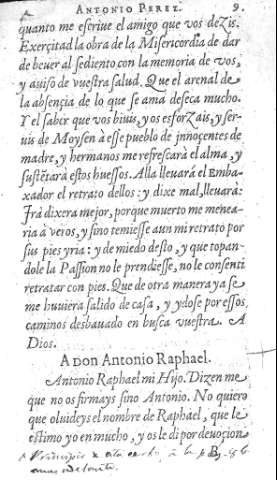 ANTONIO PEREZ. 9.
quanto me escriue el amigo que vos dezis.
Exerçitad la obra de la Misericordia de dar
de beuer al sediento con la memoria de vos,
y auiso de vuestra salud. Que el arenal de
la absençia de lo que se ama deseca mucho.
Y el sabir que vos biuis, y os esforzais, y ser-
uis de Moysen à esse pueblo de innoçentes de
madre, y hermanos me refrescarà el alma, y
sustẽtarà estos huessos. Alla lleuarà el Emba-
xador el retrato dellos: y dixe mal, lleuarà:
Irà dixera mejor, porque muerto me menea-
ria à veros, y sino temiesse aun mi retrato por
sus pies yria: y de miedo desto, y que topan-
dole la Passion no le prendiesse, no le consenti
retratar con pies. Que de otra manera ya se
me huuiera salido de casa, y ydose por essos
caminos desbauado en busca vuestra. A
Dios.
A DON Antonio Raphael.
Antonio Raphael mi Hijo. Dizen me
que no os firmays sino Antonio. No quiero
que oluideys el nombre de Raphael, que le
estimo yo en mucho, y os le di por deuoçion